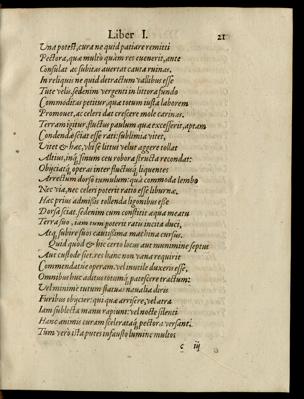 Liber I. 21
Una potest, cura ne quid patiare remitti
Pectora, quæ multo quàm res euenerit, ante
Consulat ac subitas auertat cauta ruinas.
In reliquis ne quid detractum vallibus esse
Tute velis, sedenim vergenti in littora fundo
Commoditas petitur, quæ totum iusta laborem
Promouet, ac celeri dat crescere mole carinas.
Terram igitur, fluctus paulum quæ excesserit, aptam
Condenda sciat esse rati: sublimia vitet,
Vitet & hæc, vbi se littus velut aggere tollat
Altius, inq́; sinum ceu robora structa recondat:
Obiectaq́; operas inter fluctusq́; liquentes
Arrectum dorso tumulum: quâ commoda lembo
Nec via, nec celeri poterit ratio esse liburnæ.
Hæc prius admissis tollenda ligonibus esse
Dorsa sciat, sedenim cum constitit æqua meatu
Terra suo, iam tum poterit ratis incita duci,
Atq́; subire suos cautissima machina cursus.
Quid quòd & hic certo locus aut munimine septus
Aut custode siet. res hanc non vana requirit
Commendatu operam. vel inutile duxeris esse,
Omnibus hoc aditus totum patescere tractum:
Vel minimè tutum statuas naualia diris
Furibus obijcier: qui quæ arrisere, vel atra
Iam sublecta manu rapiunt: vel nocte silenti
Hanc animis curam scelerataq́; pectora versant.
Tum verò ista putes infausto lumine multos
c iij